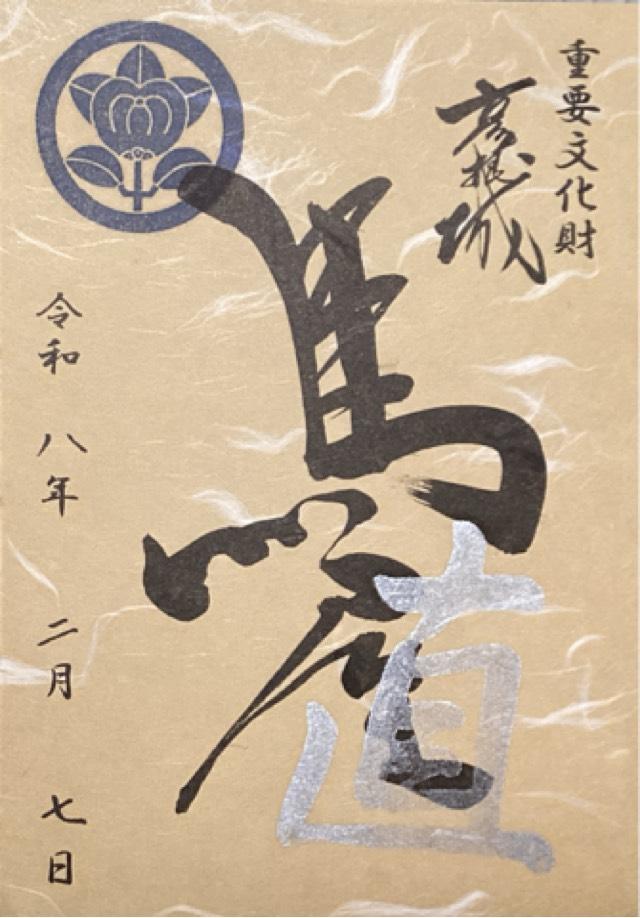 重要文化財
彦根城
馬屋
直
令和 八年 二月 七日